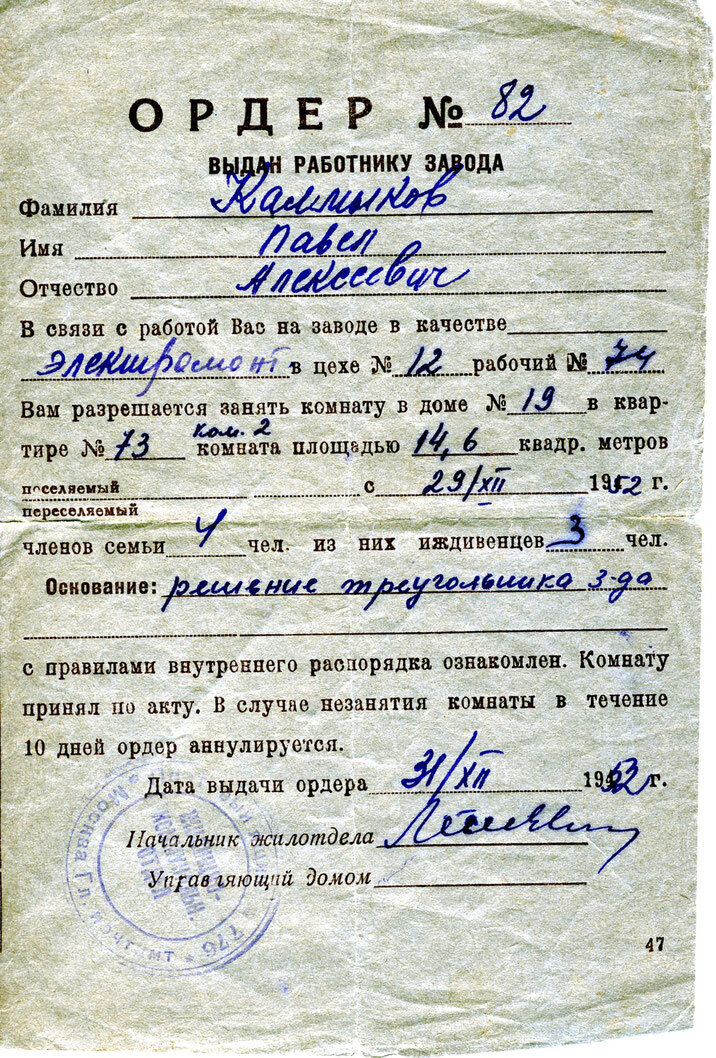 ОРДЕР № 82
ВЫДАН РАБОТНИКУ ЗАВОДА
Фамилия Калмыков
Имя Павел
Отчество Алексеевич
В связи с работой Вас на заводе в качестве
электромонт в цехе № 12 рабочий № 74
Вам разрешается занять комнату в доме № 19 в квар-
ком. 2
тире № 73 комната площадью 14,6 квадр. метров
поселяемый с 29/XII 1952 г.
переселяемый
членов семьи 4 чел. из них иждивенцев 3 чел.
Основание: решение треугольника з-да
с правилами внутреннего распорядка ознакомлен. Комнату
принял по акту. В случае незанятия комнаты в течение
10 дней ордер аннулируется.
Дата выдачи ордера 31/XII 1952 г.
Начальник жилотдела
Управляющий домом
Москва Гл. почтамт * 776
47